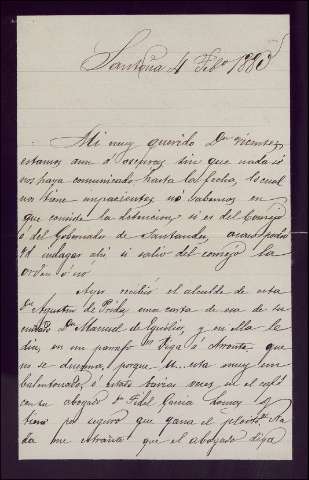 Santoña 4 Febo 1883
Mi muy querido Dn Vicente,
estamos aun á oscuras sin que nada se
nos haya comunicado hasta la fecha, lo cual
nos tiene impacientes no sabemos en
que consiste la detencion, si es del Consejo
ó del Gobernador de Santander, acaso podra
Vd indagar ahi si salió del consejo la
orden ó no
Ayer recibió el alcalde de esta
Dn Agustin de Prida, una carta de esa de su
Dn Manuel de y en ella le
dice, en un parrafo Diga á que
no se que está muy en
ó estado varias veces en el café
con su abogado Dn Fidel Garcia Lomas y
tiene por seguro que gana el pleito. Na
da me estraña que el abogado diga